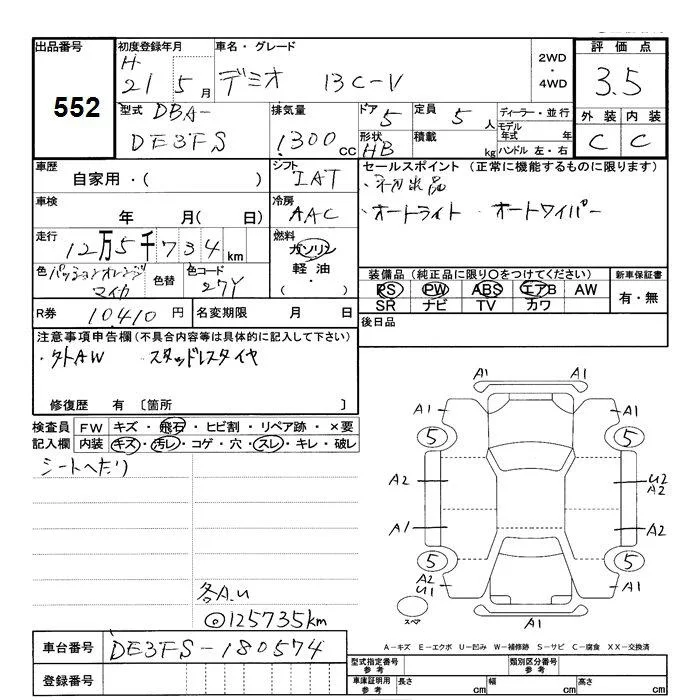 出品番号 初度登録年月 車名・グレード 2WD ・ 4WD 評価点
552 H 21 5月 デミオ 13C-V 3.5
型式 DBA- DE3FS 排気量 1300 cc ドア 5 定員 5人 ディーラー・並行 外装 内装
形状 HB 積載 kg モデル年式 年 ハンドル 左・右 C C
車歴 自家用・( ) シフト IAT セールスポイント (正常に機能するものに限ります)
車検 年 月( 日) 冷房 AAC ・オートライト ・オートワイパー
走行 12万5千734km 燃料 ガソリン 軽油・( )
色 パッションオレンジマイカ 色替 色コード 27Y 装備品(純正品に限り○をつけてください) 新車保証書
PS PW ABS エアB AW 有・無
SR ナビ TV カワ
R券 10410円 名変期限 月 日 後日品
注意事項申告欄(不具合内容等は具体的に記入して下さい)
・外AW スタッドレスタイヤ
修復歴 有 〔箇所 〕
検査員記入欄 FW キズ・飛石・ヒビ割・リペア跡・×要
内装 キズ・汚レ・コゲ・穴・スレ・キレ・破レ
シートへたり
各A.u
◎125735km
A1 A1
A1 A1
5 5
A2 U2 A2
A1 A2
5 5
A2 U1 A1
スペア A1
A-キズ E-エクボ U-凹み W-補修跡 S-サビ C-腐食 XX-交換済
車台番号 DE3FS-180574 型式指定番号 参考 類別区分番号 参考
登録番号 車庫証明用 参考 長さ cm 幅 cm 高さ cm